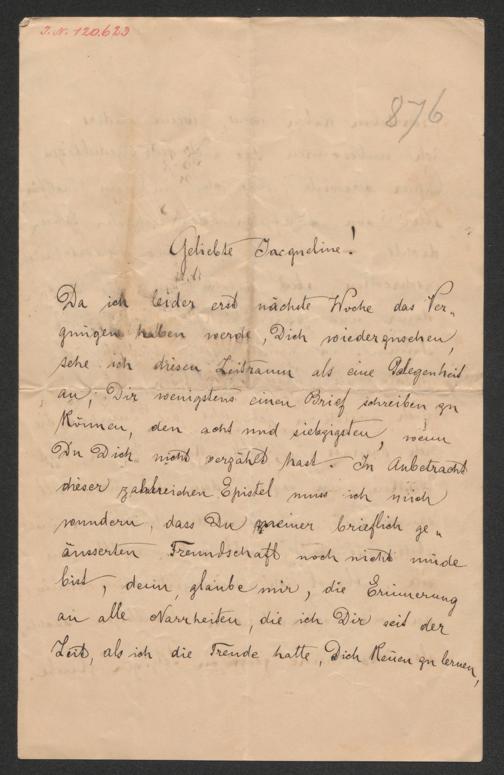 J.N. 120.623
876
Geliebte Jacqueline!
Da ich leider erst nächste Woche das Ver„
gnügen haben werde, Dich wiederzusehen,
sehe ich diesen Zeitraum als eine Gelegenheit
an, Dir wenigstens einen Brief schreiben zu
können, den acht und siebzigsten, wenn
Du Dich nicht verzählt hast. In Anbetracht
dieser zahlreichen Epistel muss ich mich
wundern, dass Du meiner brieflich ge„
äusserten Freundschaft noch nicht müde
bist, denn, glaube mir, die Erinnerung
an alle Narrheiten, die ich Dir seit der
Zeit, als ich die Freude hatte, Dich kennen zu lernen,